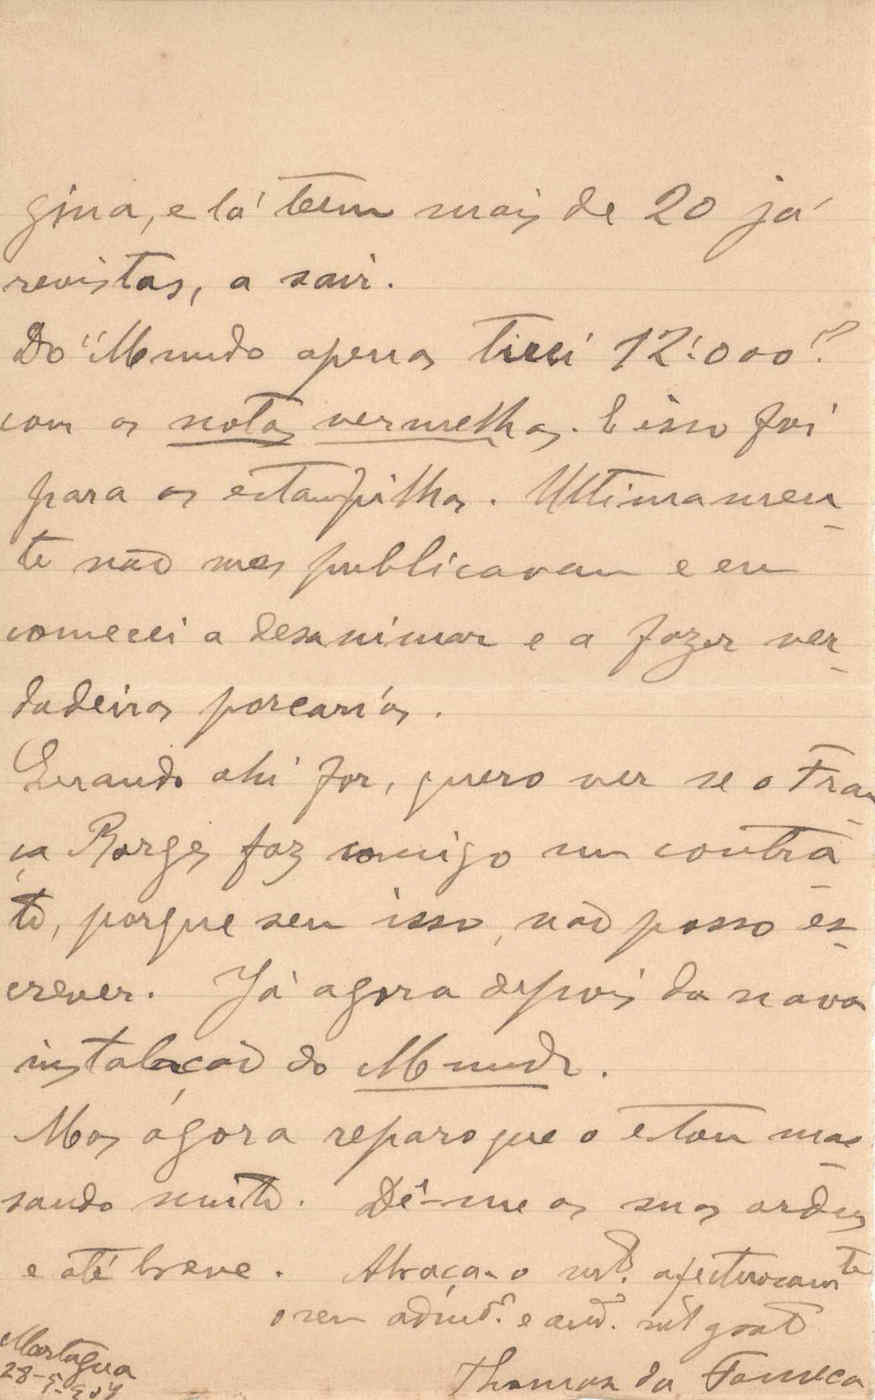 gina, e lá teem mais de 20 já
revistas, a sair.
Do "Mundo apenas tirei 12:000"
com as notas vermelhas. E isso foi
para as estampilhas. Ultimamen-
te não mas publicavam e eu
comecei a desanimar e a fazer ver-
dadeiras porcarias.
Quando ahi for, quero ver se o Fran-
ça Borges faz comigo um contra-
to, porque sem isso, não posso es-
crever. Já agora depois da nova
instalação do Mundo.
Mas ágora reparo que o estou mas-
sando muito. Dê-me as suas ordens
e até breve. Abraça-o mto. afectuosamte
o seu admdor. e amo. mt grato
Thomaz da Fonseca
Mortagua